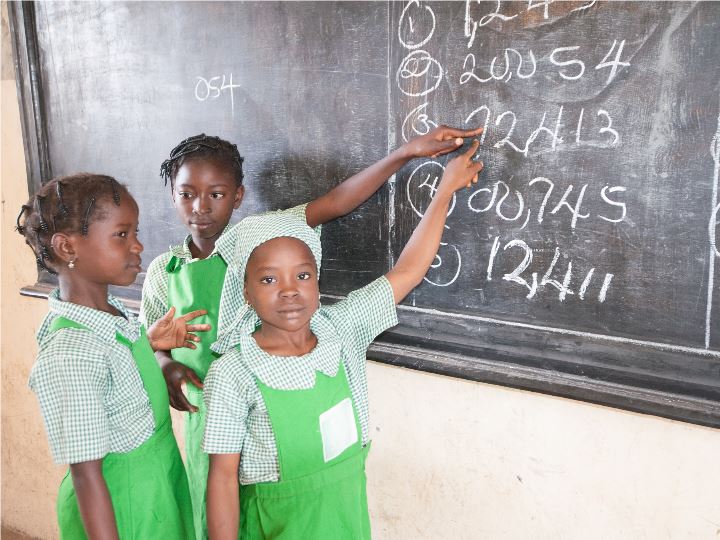 054
① 
② 20,054
③ 72,413
④ 00,745
⑤ 12,411